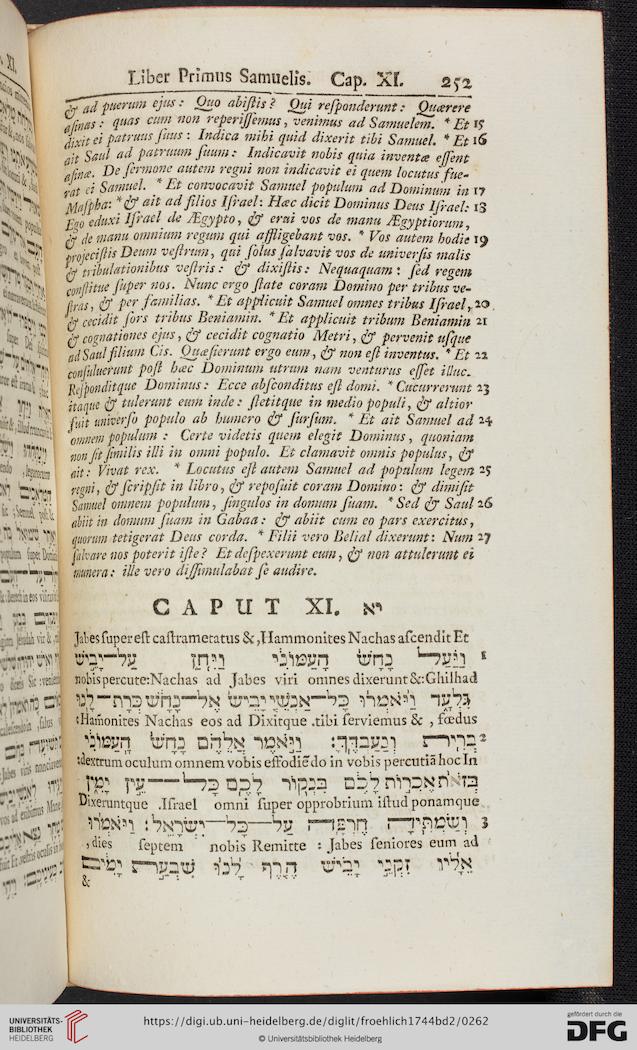 Liber Primus Samuelis. Cap. XI. 252
& ad puerum ejus: Quo abiſtis? Qui reſponderunt: Quærere
aſinas: quas cum non reperiſſemus, venimus ad Samuelem. * Et 15
dixit ei patruus ſuus: Indica mihi quid dixerit tibi Samuel. * Et 16
ait Saul ad patruum ſuum: Indicavit nobis quia inventæ eſſent
aſinæ. De ſermone autem regni non indicavit ei quem locutus fue-
rat ei Samuel. * Et convocavit Samuel populum ad Dominum in 17
Maſpha: * & ait ad filios Iſrael: Hæc dicit Dominus Deus Iſrael: 18
Ego eduxi Iſrael de Ægypto, & erui vos de manu Ægyptiorum,
& de manu omnium regum qui affligebant vos. * Vos autem hodie 19
projeciſtis Deum veſtrum, qui ſolus ſalvavit vos de univerſis malis
& tribulationibus veſtris: & dixiſtis: Nequaquam: ſed regem
conſtitue ſuper nos. Nunc ergo ſtate coram Domino per tribus ve-
ſtras, & per familias. * Et applicuit Samuel omnes tribus Iſrael, 20
& cecidit ſors tribus Beniamin. * Et applicuit tribum Beniamin 21
& cognationes ejus, & cecidit cognatio Metri, & pervenit uſque
ad Saul filium Cis. Quæſierunt ergo eum, & non eſt inventus. * Et 22
conſuluerunt poſt hæc Dominum utrum nam venturus eſſet illuc.
Reſponditque Dominus: Ecce abſconditus eſt domi. * Cucurrerunt 23
itaque & tulerunt eum inde: ſtetitque in medio populi, & altior
fuit univerſo populo ab humero & ſurſum. * Et ait Samuel ad 24
omnem populum: Certe videtis quem elegit Dominus, quoniam
non ſit ſimilis illi in omni populo. Et clamavit omnis populus, &
ait: Vivat rex. * Locutus eſt autem Samuel ad populum legem 25
regni, & ſcripſit in libro, & repoſuit coram Domino: & dimiſit
Samuel omnem populum, ſingulos in domum ſuam. * Sed & Saul 26
abiit in domum ſuam in Gabaa: & abiit cum eo pars exercitus,
quorum tetigerat Deus corda. * Filii vero Belial dixerunt: Num 27
ſalvare nos poterit iſte? Et deſpexerunt eum, & non attulerunt ei
munera: ille vero diſſimulabat ſe audire.
CAPUT XI. יא
Jabes ſuper eſt caſtrametatus & , Hammonites Nachas aſcendit Et
וַיַּעַל נָחָשׁ הָעַמּוֹנִי וַיִּחַן עַל־יָבֵישׁ 1
nobis percute: Nachas ad Jabes viri omnes dixerunt &: Ghilhad
גִּלְעָד וַיֹּאמְרוּ כָּל־אַנְשֵׁי יָבֵישׁ אֶל־נָחָשׁ כְּרָת־לָנוּ
: Hamonites Nachas eos ad Dixitque .tibi ſerviemus & , fœdus
בְרִית וְנַעַבְדֶךָּ: וַיֹּאמֶר אֲלֵהֶם נָחָשׁ הָעַמּוֹנִי 2
:dextrum oculum omnem vobis effodiẽdo in vobis percutiã hoc In
בְּזֹאת אֶכְרוֹת לָכֶם בִּנְקוֹר לָכֶם כָּל־עֵין יָמִין
Dixeruntque .Iſrael omni ſuper opprobrium iſtud ponamque
וְשַׂמְתִּיהָ חֶרְפָּה עַל־כָּל־יִשְׂרָאֵל: וַיֹּאמְרוּ 3
, dies ſeptem nobis Remitte : Jabes ſeniores eum ad
אֵלָיו זִקְנֵי יָבֵישׁ הֶרֶף לָנוּ שִׁבְעַת יָמִים
&
UNIVERSITÄTS-
BIBLIOTHEK
HEIDELBERG
https://digi.ub.uni-heidelberg.de/diglit/froehlich1744bd2/0262
© Universitätsbibliothek Heidelberg
gefördert durch die
DFG